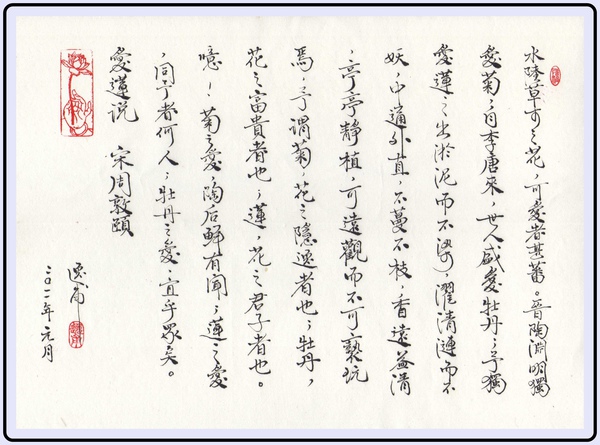 水陸草木之花,可愛者甚蕃。晉陶淵明獨
愛菊;自李唐來,世人盛愛牡丹;予獨
愛蓮之出淤泥而不染,濯清漣而不
妖;中通外直,不蔓不枝,香遠益清
,亭亭靜植,可遠觀而不可褻玩
焉;予謂菊,花之隱逸者也;牡丹,
花之富貴者也;蓮,花之君子者也。
噫!菊之愛,陶后鮮有聞;蓮之愛
,同予者何人;牡丹之愛,宜乎眾矣。
愛蓮说 宋周敦頤
二〇一二年元月